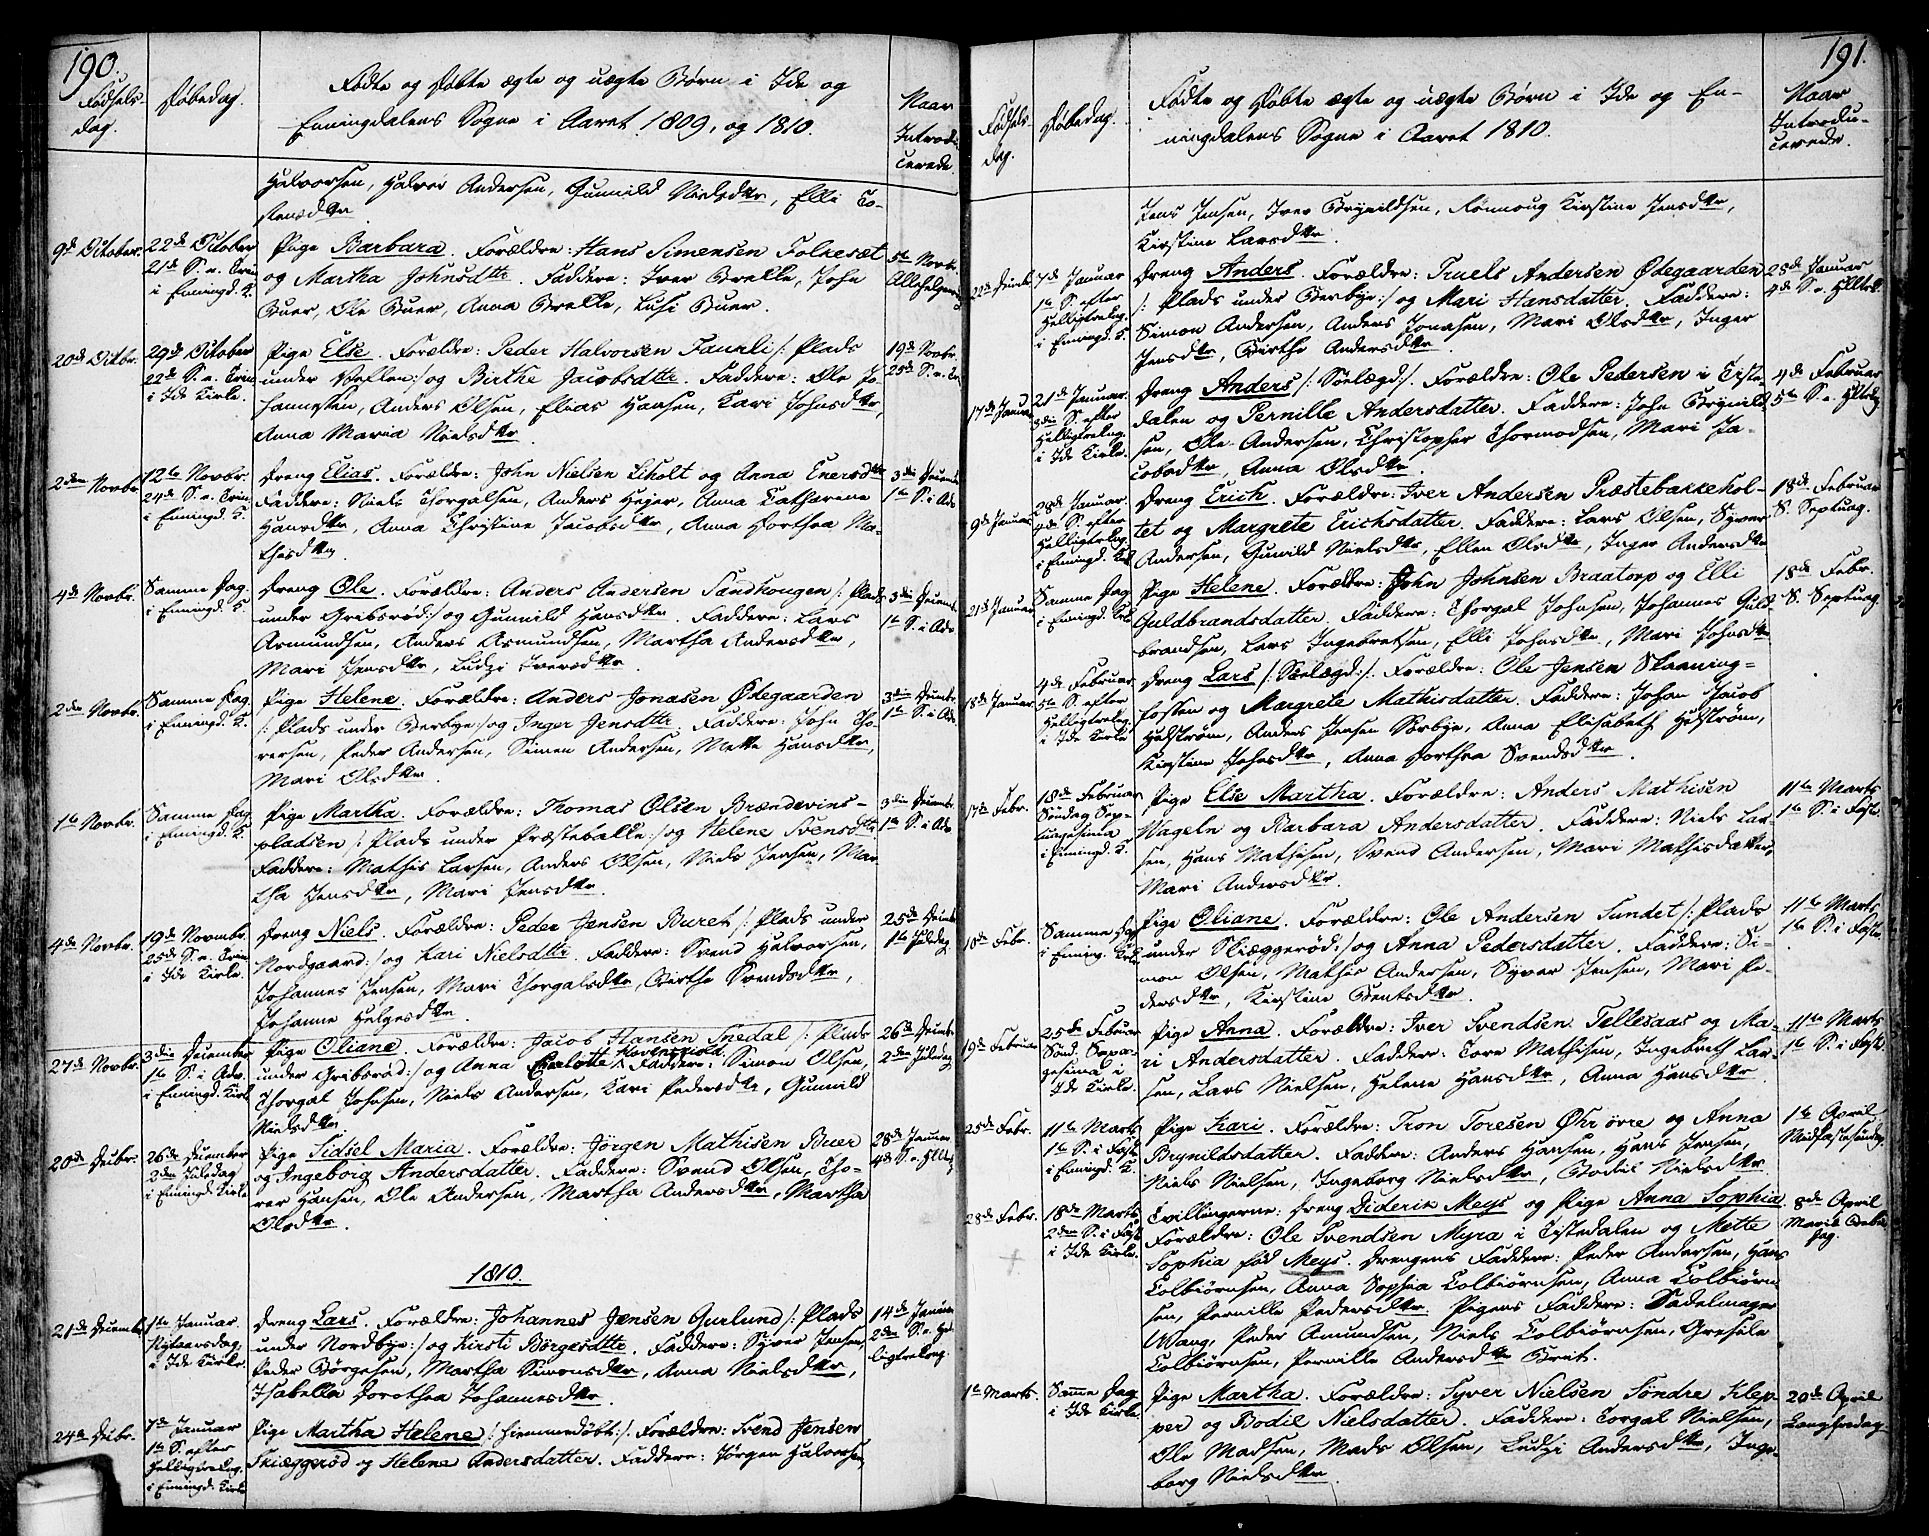 190.
Fødsels-
dag.
Døbedag.
Fødte og Døbte ægte og uægte Børn i Ide og
Enningdalens Sogne i Aaret 1809, og 1810.
Naar
Introdu-
cerede.
Halvorsen, Halvor Andersen, Gunnild Nielsdtr, Elli To-
stensdtr
9de October.
22de October
21de S. e. Trin.
i Enningd. K.
Pige Barbara. Forældre: Hans Simensen Folkesæt
og Martha Johnsdtr. Faddere: Iver Brelle, John
Buer, Ole Buer, Anna Brelle, Lusi Buer.
5te Novbr.
Allehelgens
20de Octbr.
29de October
22de S. e. Trin.
i Ide Kirke.
Pige Else. Forældre: Peder Halvorsen Faurli /: Plads
under Veslen :/ og Birthe Jacobsdtr. Faddere: Ole Jo-
hannesen, Anders Olsen, Elias Hansen, Kari Johnsdtr,
Anna Maria Nielsdtr.
19de Novbr.
25de S. e. Tr.
2den Novbr.
12te Novbr.
24de S. e. Trin.
i Enningd. K.
Dreng Elias. Forældre: John Nielsen Liholt og Anna Enersdtr
Faddere: Niels Thorgalsen, Anders Hejer, Anna Catharine
Hansdtr, Anna Christine Jacobsdtr, Anna Dorthea Ma-
thisdtr.
3die Decembr
1te S. i Adv.
4de Novbr.
Samme Dag
i Enningd. K.
Dreng Ole. Forældre: Anders Andersen Sandhougen /: Plads
under Gribsrød :/ og Gunnild Hansdtr. Faddere: Lars
Asmundsen, Anders Asmundsen, Martha Andersdtr,
Mari Jensdtr, Ludzi Iversdtr.
3die Decembr.
1te S. i Adv.
2den Novbr.
Samme Dag
i Enningd. K.
Pige Helene. Forældre: Anders Jonasen Ødegaarden
/: Plads under Berbye :/ og Inger Jensdtr. Faddere: John To-
rersen, Peder Andersen, Simen Andersen, Mette Hansdtr,
Mari Olsdtr.
3die Decembr.
1te S. i Adv.
1te Novbr.
Samme Dag
i Enningd. K.
Pige Martha. Forældre: Thomas Olsen Brændevins-
pladsen /: Plads under Præstebakke :/ og Helene Svensdtr
Faddere: Mathis Larsen, Anders Olsen, Niels Jensen, Mar-
tha Jensdtr, Mari Jensdtr.
3die Decembr.
1te S. i Adv.
4de Novbr.
19de Novmbr.
25de S. e. Trin.
i Ide Kirke.
Dreng Niels. Forældre: Peder Jensen Buret /: Plads under
Nordgaard :/ og Kari Nielsdtr. Faddere: Svend Halvorsen,
Johannes Jensen, Mari Thorgalsdtr, Birthe Svendsdtr,
Johanne Helgesdtr.
25de Decmb.
1te Juledag
27de Novbr.
3die December
1te S. i Adv.
i Enningd. Kirke
Pige Oliane. Forældre: Jacob Hansen Snedal /: Plads
under Gribsrød :/ og Anna Charlotte Faddere: Simon Olsen,
Thorgal Johnsen, Niels Andersen, Kari Pedersdtr, Gunnild
Nielsdtr.
26de Decmbr
2den Juledag
20de Decbr.
26de December
2den Juledag
i Enningd. Kirke
Pige Sidsel Maria. Forældre: Jørgen Mathisen Buer
og Ingeborg Andersdatter. Faddere: Svend Olsen, Tho-
rer Hansen, Ole Andersen, Martha Andersdtr, Martha
Olsdtr.
28de Januar
4de S. e. Hlltrk.
1810.
21de Decembr.
1te Januar.
Nytaarsdag,
i Ide Kirke.
Dreng Lars. Forældre: Johannes Jensen Gurlund /: Plads
under Nordbye :/ og Kirsti Börgesdtr. Faddere: Syver Jensen,
Peder Börgesen, Martha Simonsdtr, Anna Nielsdtr,
Isabella Dorothea Johannesdtr.
14de Januar
2den S. e. Hel-
ligtrekong.
24de Decbr.
7de Januar
1te S. efter
Helligtrekg.
i Enningd. Kirke
Pige Martha Helene /: hiemmedøbt :/. Forældre: Svend Jensen
Skiæggerød og Helene Andersdatter. Faddere: Jørgen Halvorsen,
191.
Fødsels-
dag.
Døbedag.
Fødte og Døbte ægte og uægte Børn i Ide og En-
ningdalens Sogne i Aaret 1810.
Naar
Introdu-
cerede.
Jens Jensen, Iver Brynildsen, Rönnoug Kirstine Jensdtr,
Kirstine Larsdtr.
22de Decbr.
7de Januar
1te S. efter
Helligtrekg.
i Enningd. K.
Dreng Anders. Forældre: Truels Andersen Ødegaarden
/: Plads under Berbye :/ og Mari Hansdatter. Faddere:
Simon Andersen, Anders Jonasen, Mari Olsdtr, Inger
Jensdtr, Birthe Andersdtr.
28de Januar
4de S. e. Hlltrk.
17de Januar
21de Januar.
3die S. efter
Helligtrekng.
i Ide Kirke.
Dreng Anders /: Sölægd :/. Forældre: Ole Pedersen i Tiste-
dalen og Pernille Andersdatter. Faddere: John Brynild-
sen, Ole Andersen, Christopher Thormodsen, Mari Ja-
cobsdtr, Anna Olsdtr.
4de Februar
5te S. e. Hlltrkg.
9de Januar
28de Januar.
4de S. efter
Helligtrekng.
i Enningd. Kirke
Dreng Erich. Forældre: Iver Andersen Præstebakkehol-
tet og Margrete Erichsdatter. Faddere: Lars Olsen, Syver
Andersen, Gunild Nielsdtr, Ellen Olsdtr, Inger Andersdtr
18de Februar
S. Septuag.
21de Januar
Samme Dag
i Enningd. Kirke
Pige Helene. Forældre: John Johnsen Braatorp og Elli
Guldbrandsdatter. Faddere: Thorgal Johnsen, Johannes Guld-
brandsen, Lars Ingebretsen, Elli Johnsdtr, Mari Johnsdtr
18de Febr.
S. Septuag.
18de Januar.
4de Februar
5te S. efter
Helligtrekng.
i Ide Kirke
Dreng Lars /: Sölægd :/. Forældre: Ole Jensen Skaaning-
fosten og Margrete Mathisdatter. Faddere: Johan Jacob
Helström, Anders Jensen Sørbye, Anna Elisabeth Helström,
Kirstine Johnsdtr, Anna Dorthea Svendsdtr.
17de Febr.
18de Februar
Søndag Sep-
tuagesima
i Enningd. K.
Pige Else Martha. Forældre: Anders Mathisen
Nageln og Barbara Andersdatter. Faddere: Niels Lar-
sen, Hans Mathisen, Svend Andersen, Mari Mathisdatter,
Mari Andersdtr.
11te Marts
1te S. i Faste.
18de Febr.
Samme Dag
i Enning. Kirke
Pige Oliane. Forældre: Ole Andersen Sundet /: Plads
under Skiæggerød :/ og Anna Pedersdatter. Faddere: Si-
mon Olsen, Mathis Andersen, Syver Jensen, Mari Pe-
dersdtr, Kirstine Bentsdtr.
11te Marts
1te S. i Faste.
19de Februar
25de Februar
Sönd. Sexa-
gesima i
Ide Kirke.
Pige Anna. Forældre: Iver Svendsen Tellesaas og Ma-
ri Andersdatter. Faddere: Tore Mathisen, Ingebreth Lar-
sen, Lars Nielsen, Helene Hansdtr, Anna Hansdtr.
11te Marts
1te S. i Faste.
25de Febr.
11te Marts
1te S. i Faste
i Enningd. K.
Pige Kari. Forældre: Tron Toresen Øhr övre og Anna
Brynildsdatter. Faddere: Anders Hansen, Hans Jensen,
Niels Nielsen, Ingeborg Nielsdtr, Bodil Nielsdtr.
1te April
Midfastesöndag
28de Febr.
18de Marts
2den S. i Faste
i Ide Kirke.
Tvillingerne: Dreng Diderik Meys og Pige Anna Sophia
Forældre: Ole Svendsen Myra i Tistedalen og Mette
Sophia född Meys. Drengens Faddere: Peder Andersen, Hans
Colbiørnsen, Anna Sophia Colbiørnsen, Anna Colbiørn-
sen, Pernille Pedersdtr. Pigens Faddere: Sadelmager
Wang, Peder Amundsen, Niels Colbiørnsen, Gresele
Colbiørnsen, Pernille Andersdtr Breit.
8de April
Mariæ Bebud.
Dag.
1te Marts
Samme Dag
i Ide Kirke.
Pige Martha. Forældre: Syver Nielsen Söndre Klep-
per og Bodil Nielsdatter. Faddere: Torgal Nielsen,
Ole Madsen, Mads Olsen, Ludzi Andersdtr, Inge-
borg Nielsdtr.
20de April
Langfredag